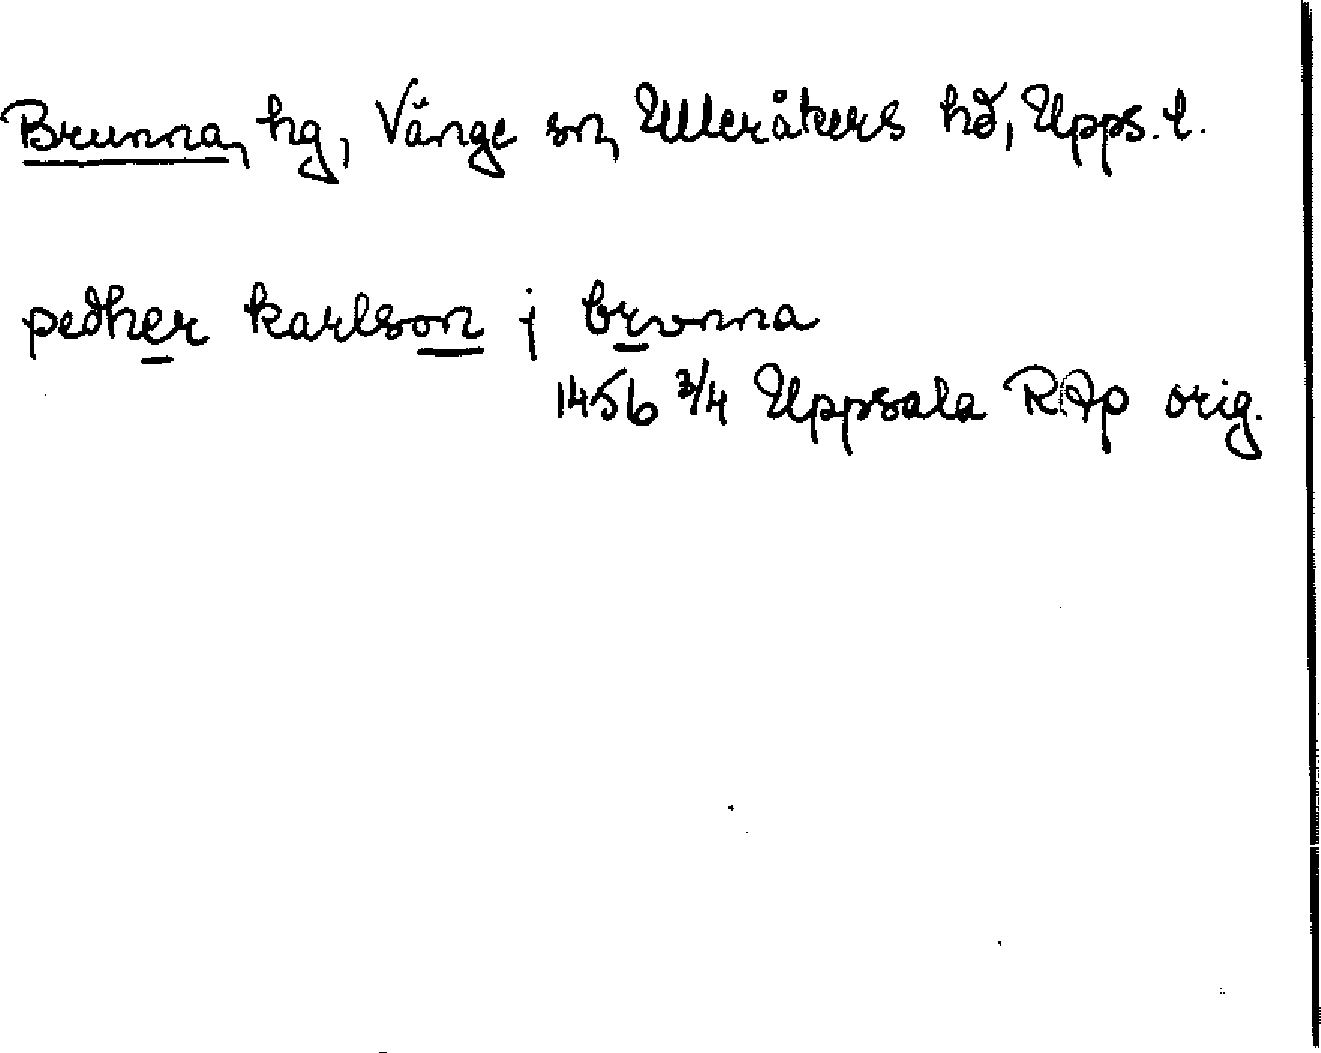 Brunna, hg, Vänge sn, Ulleråkers hd, Upps. l.
pedher karlson j brvnna
1456 3/4 Uppsala RAp orig.